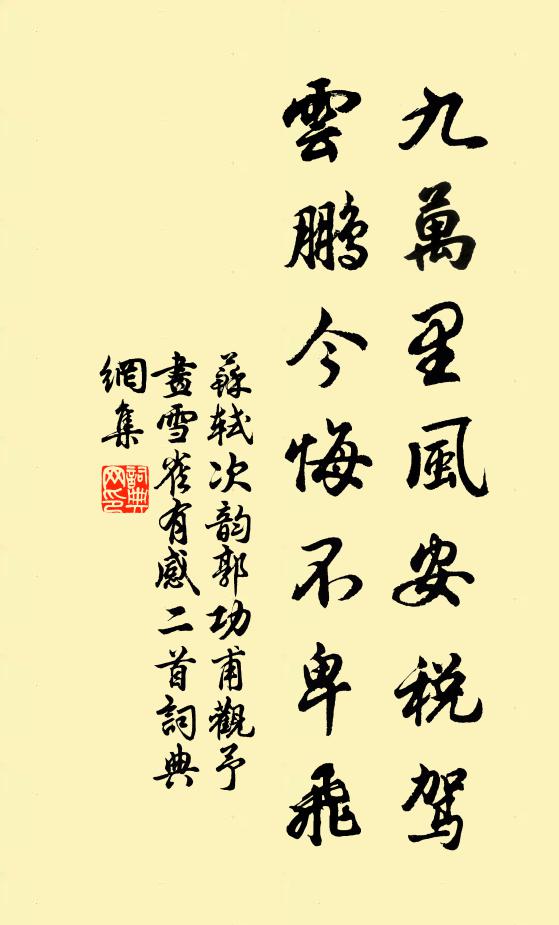 九萬里風安税駕
雲鵬今悔不卑飛
蘇軾次韵郭功甫觀予
畫雪雀有感二首詞典
網集
詞典
网印